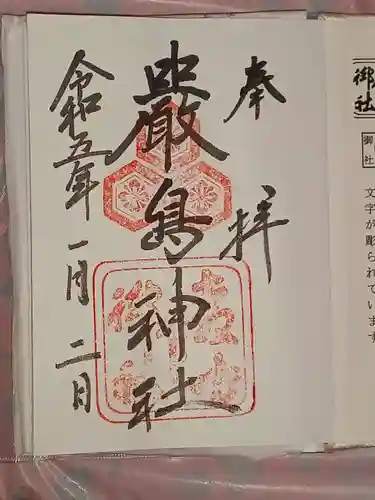 奉拝
嚴島神社
令和五年一月二日
御社
御社
文字が彫られています